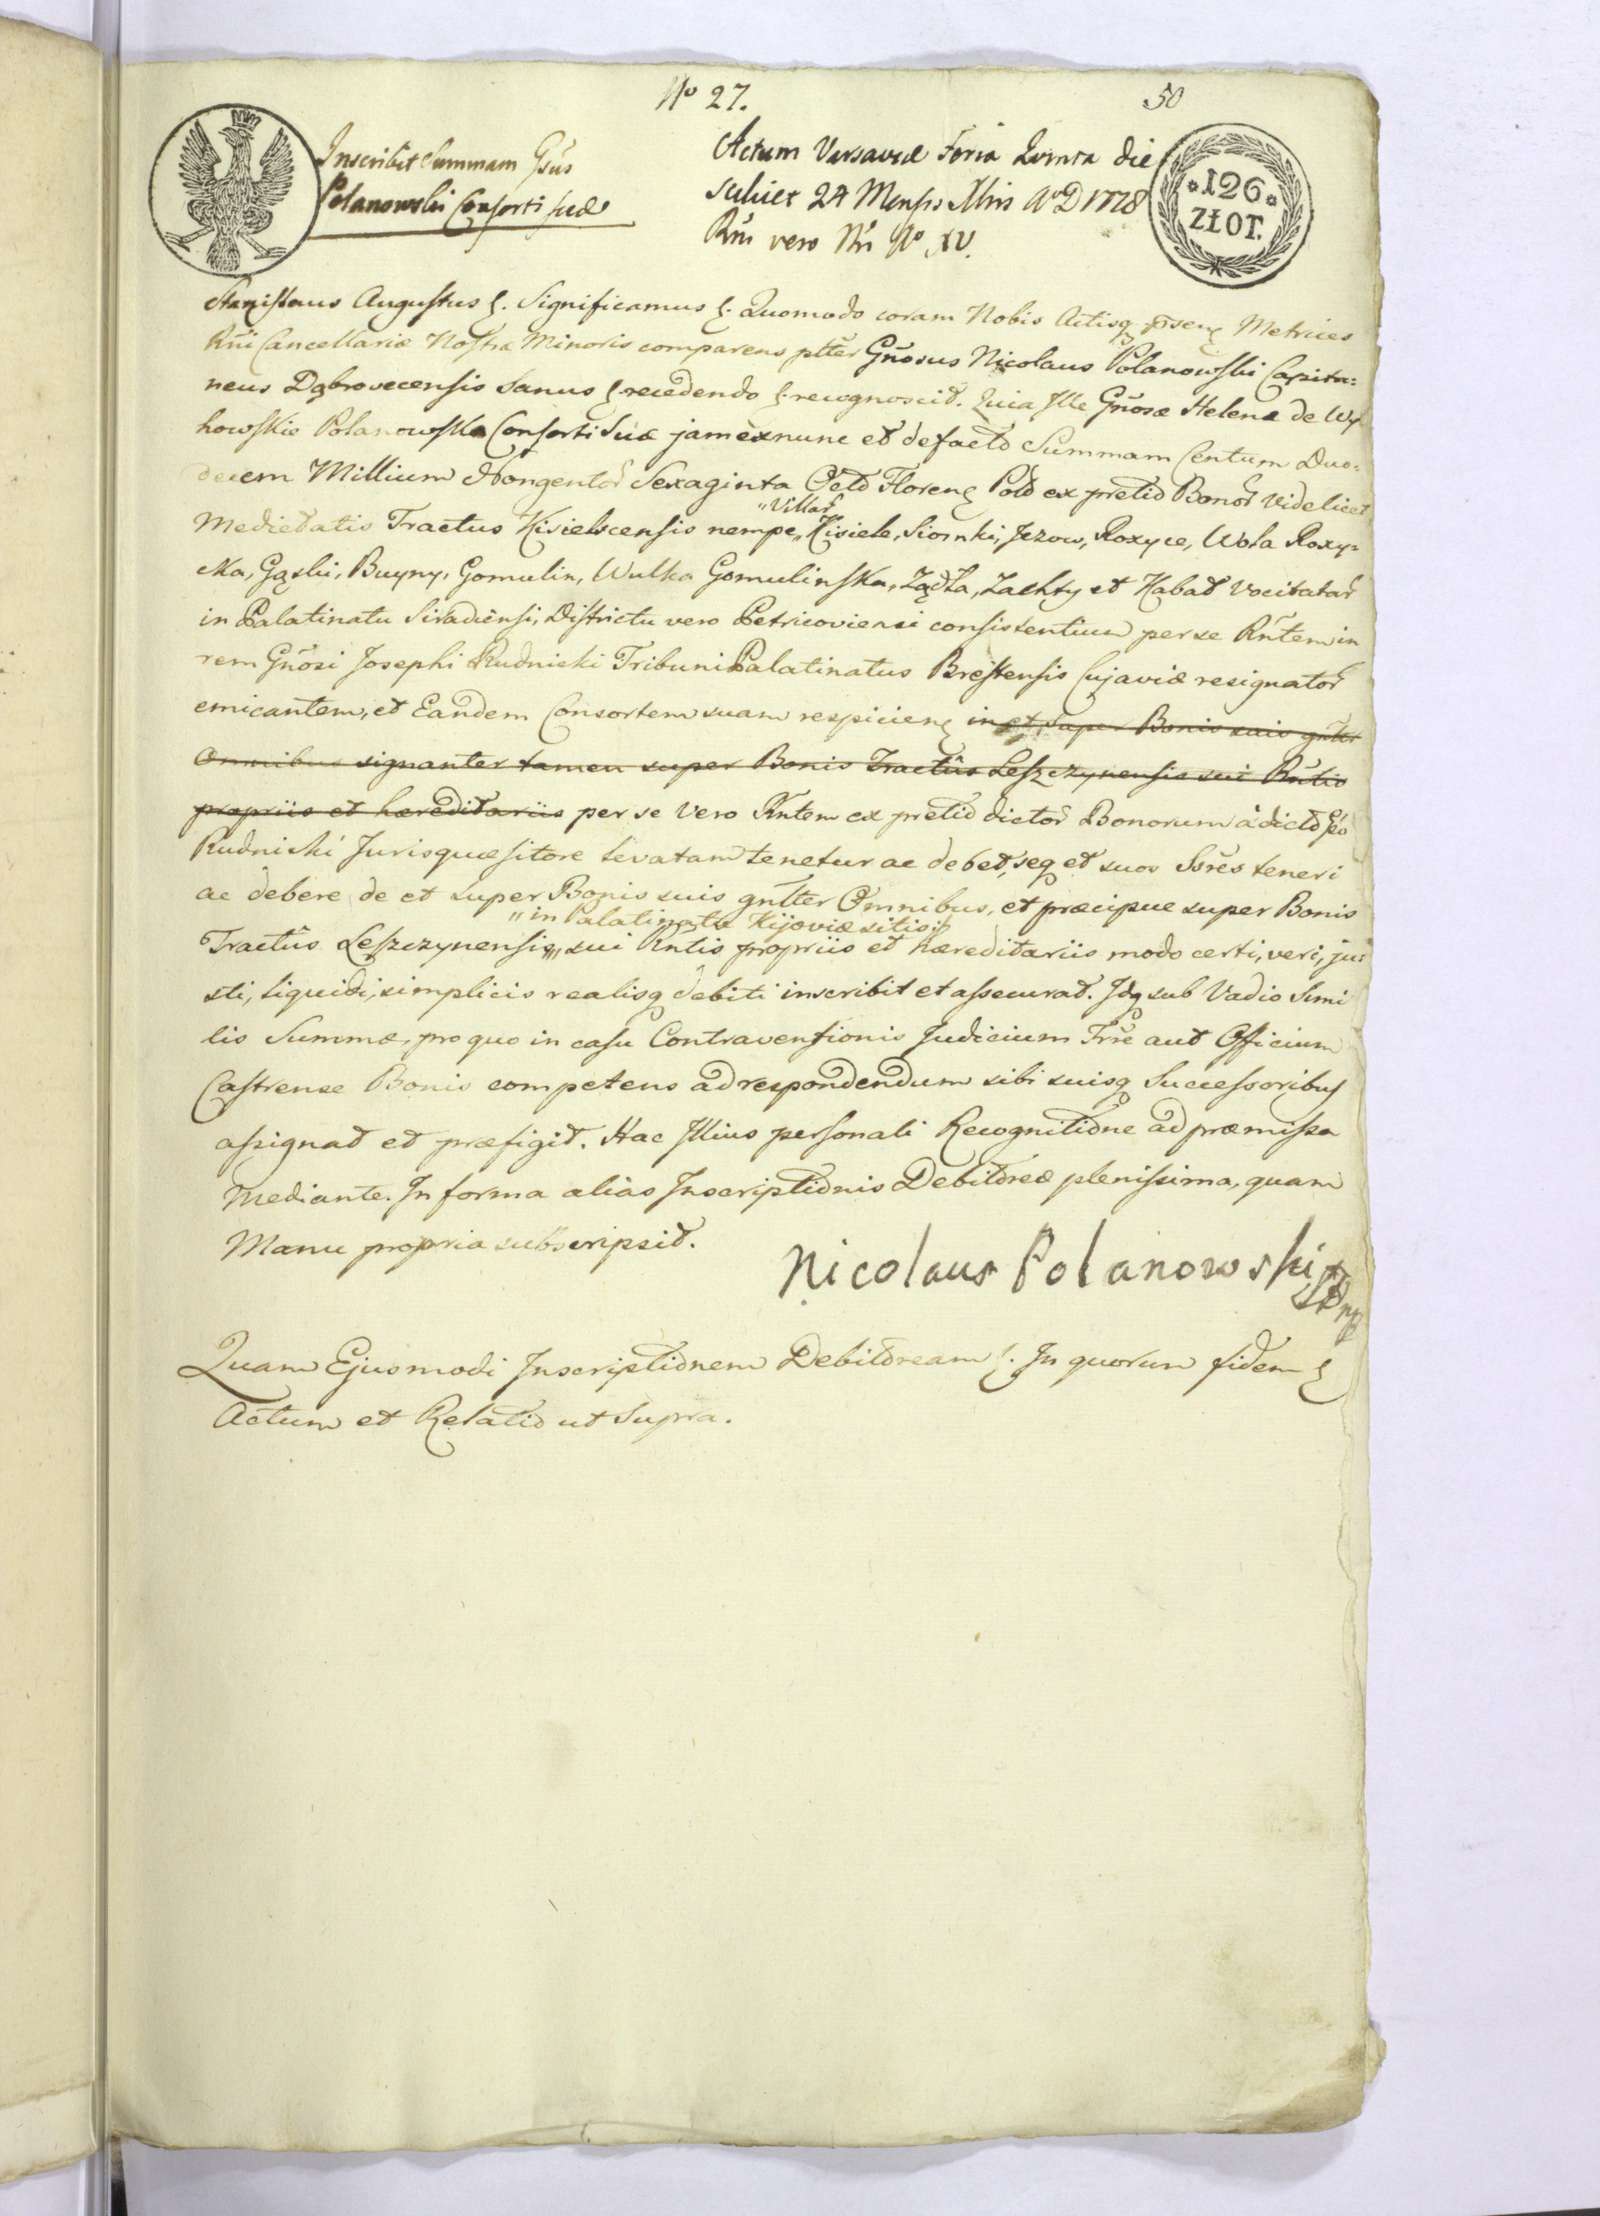 No 27.
50
Inscribit Summam Gsus
Polanowski Consorti suæ
Actum Varsaviæ Feria Quinta die
scilicet 24 Mensis Xbris Ao D 1778
Rni vero Nri No XV.
126
ZŁOT.
Stanislaus Augustus &. Significamus &. Quomodo coram Nobis Actisq pñsen Metrices
Rñi Cancellariæ Nostræ Minoris comparens pltër Gñosus Nicolaus Polanowski Capita:
neus Dąbrovecensis sanus & recedendo & recognoscit. Quia Ille Gñosæ Helenæ de Wy
howskie Polanowska Consorti Suæ jam exnunc et defacto Summam Centum Duo:
decem Millium Nongentor Sexaginta Octo Floren Pold ex pretio Bonor videlicet
Medietatis Tractus Kisielscensis nempe „Villar„ Kisiele, Siomki, Jezow, Roxyce, Wola Roxy:
cka, Gąski, Buyny, Gomulin, Wulka Gomulinska, Ządła, Zachty et Kabat vocitatar
in Palatinatu Siradiensi, Districtu vero Petricoviensi consistentium per se Rñtem in
rem Gñosi Josephi Rudnicki Tribuni Palatinatus Brestensis Cujaviæ resignator
emicantem, et Eandem Consortem suam respicien in et super Bonis suis gñlter
Omnibus signanter tamen super Bonis Tractûs Leszczynensis sui Rñtis
propriis et hæreditariis per se vero Rñtem ex pretio dictor Bonorum a dicto Gso
Rudnicki Jurisquæsitore levatam tenetur ac debet, seq et suos Ssrës teneri
ac debere de et super Bonis suis gñlter Omnibus, et præcipue super Bonis
Tractûs Leszczynensis „in Palatinatu Kijoviæ sitis„ sui Rñtis propriis et hæreditariis modo certi, veri, ju:
sti, liquidi, simplicis realisq debiti inscribit et assecurat. Idq sub Vadio Simi
lis Summæ, pro quo in casu Contraventionis Judicium Trre aut Officium
Castrense Bonis competens ad respondendum sibi suisq Successoribus
assignat et præfigit. Hac Illius personali Recognitione ad præmissa
mediante. In forma aliàs Inscriptionis Debitoreæ plenissima, quam
Manu propria subscripsit.
Nicolaus Polanowski
Quam Ejusmodi Inscriptionem Debitoream &. In quorum fidem &
Actum et Relatio ut supra.